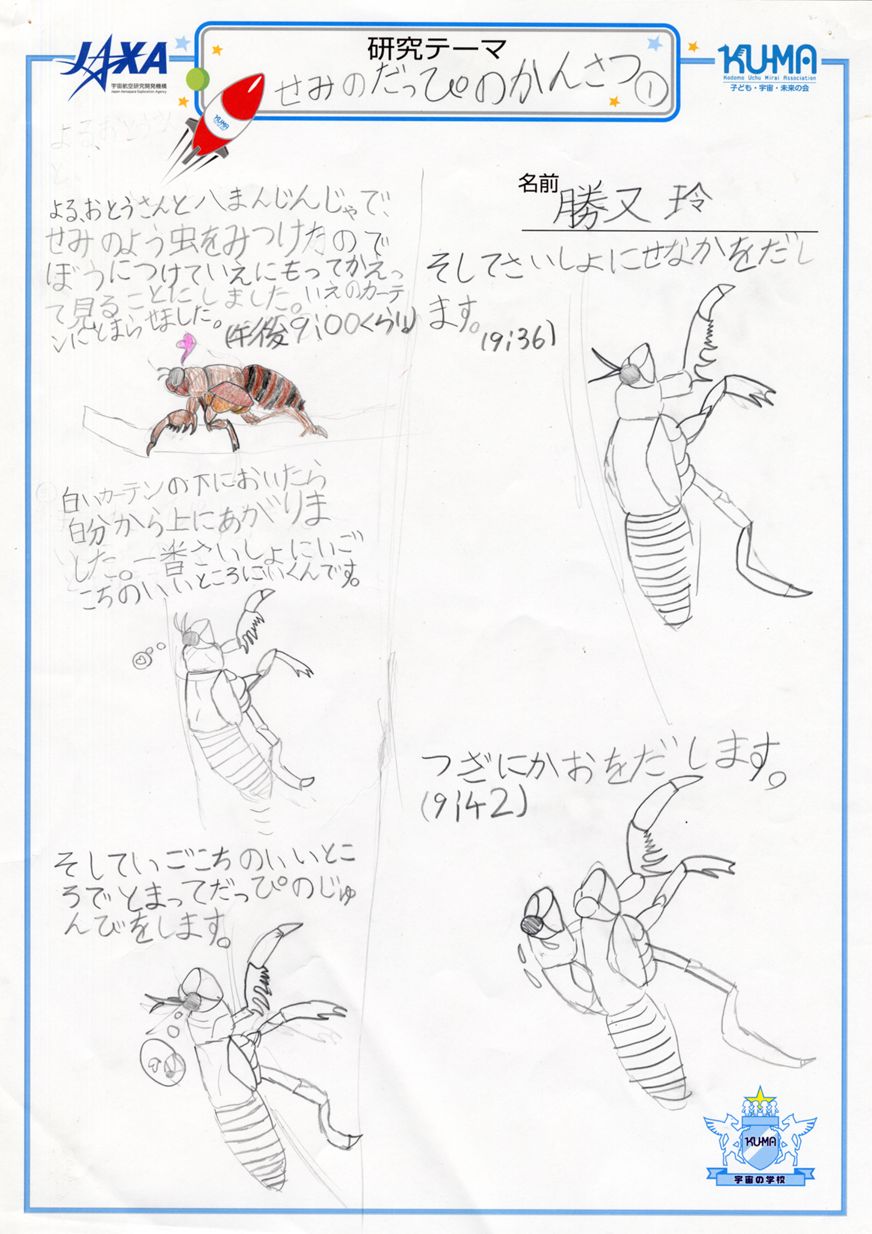 JAXA
宇宙航空研究開発機構
Japan Aerospace Exploration Agency
研究テーマ
せみのだっぴのかんさつ①
KU-MA
Kodomo Uchu Mirai Association
子ども・宇宙・未来の会
KU-MA
よる、おとうさん
と
名前 勝又 玲
よる、おとうさんと八まんじんじゃで、
せみのよう虫をみつけたので
ぼうにつけていえにもってかえっ
て見ることにしました。いえのカーテ
ンにとまらせました。(午後9:00くらい)
白いカーテンの下においたら
自分から上にあがりま
した。一番さいしょにいご
こちのいいところにいくんです。
そしていごこちのいいとこ
ろでとまってだっぴのじゅ
んびをします。
そしてさいしょにせなかをだし
ます。
(9:36)
つぎにかおをだします。
(9:42)
KU-MA
宇宙の学校